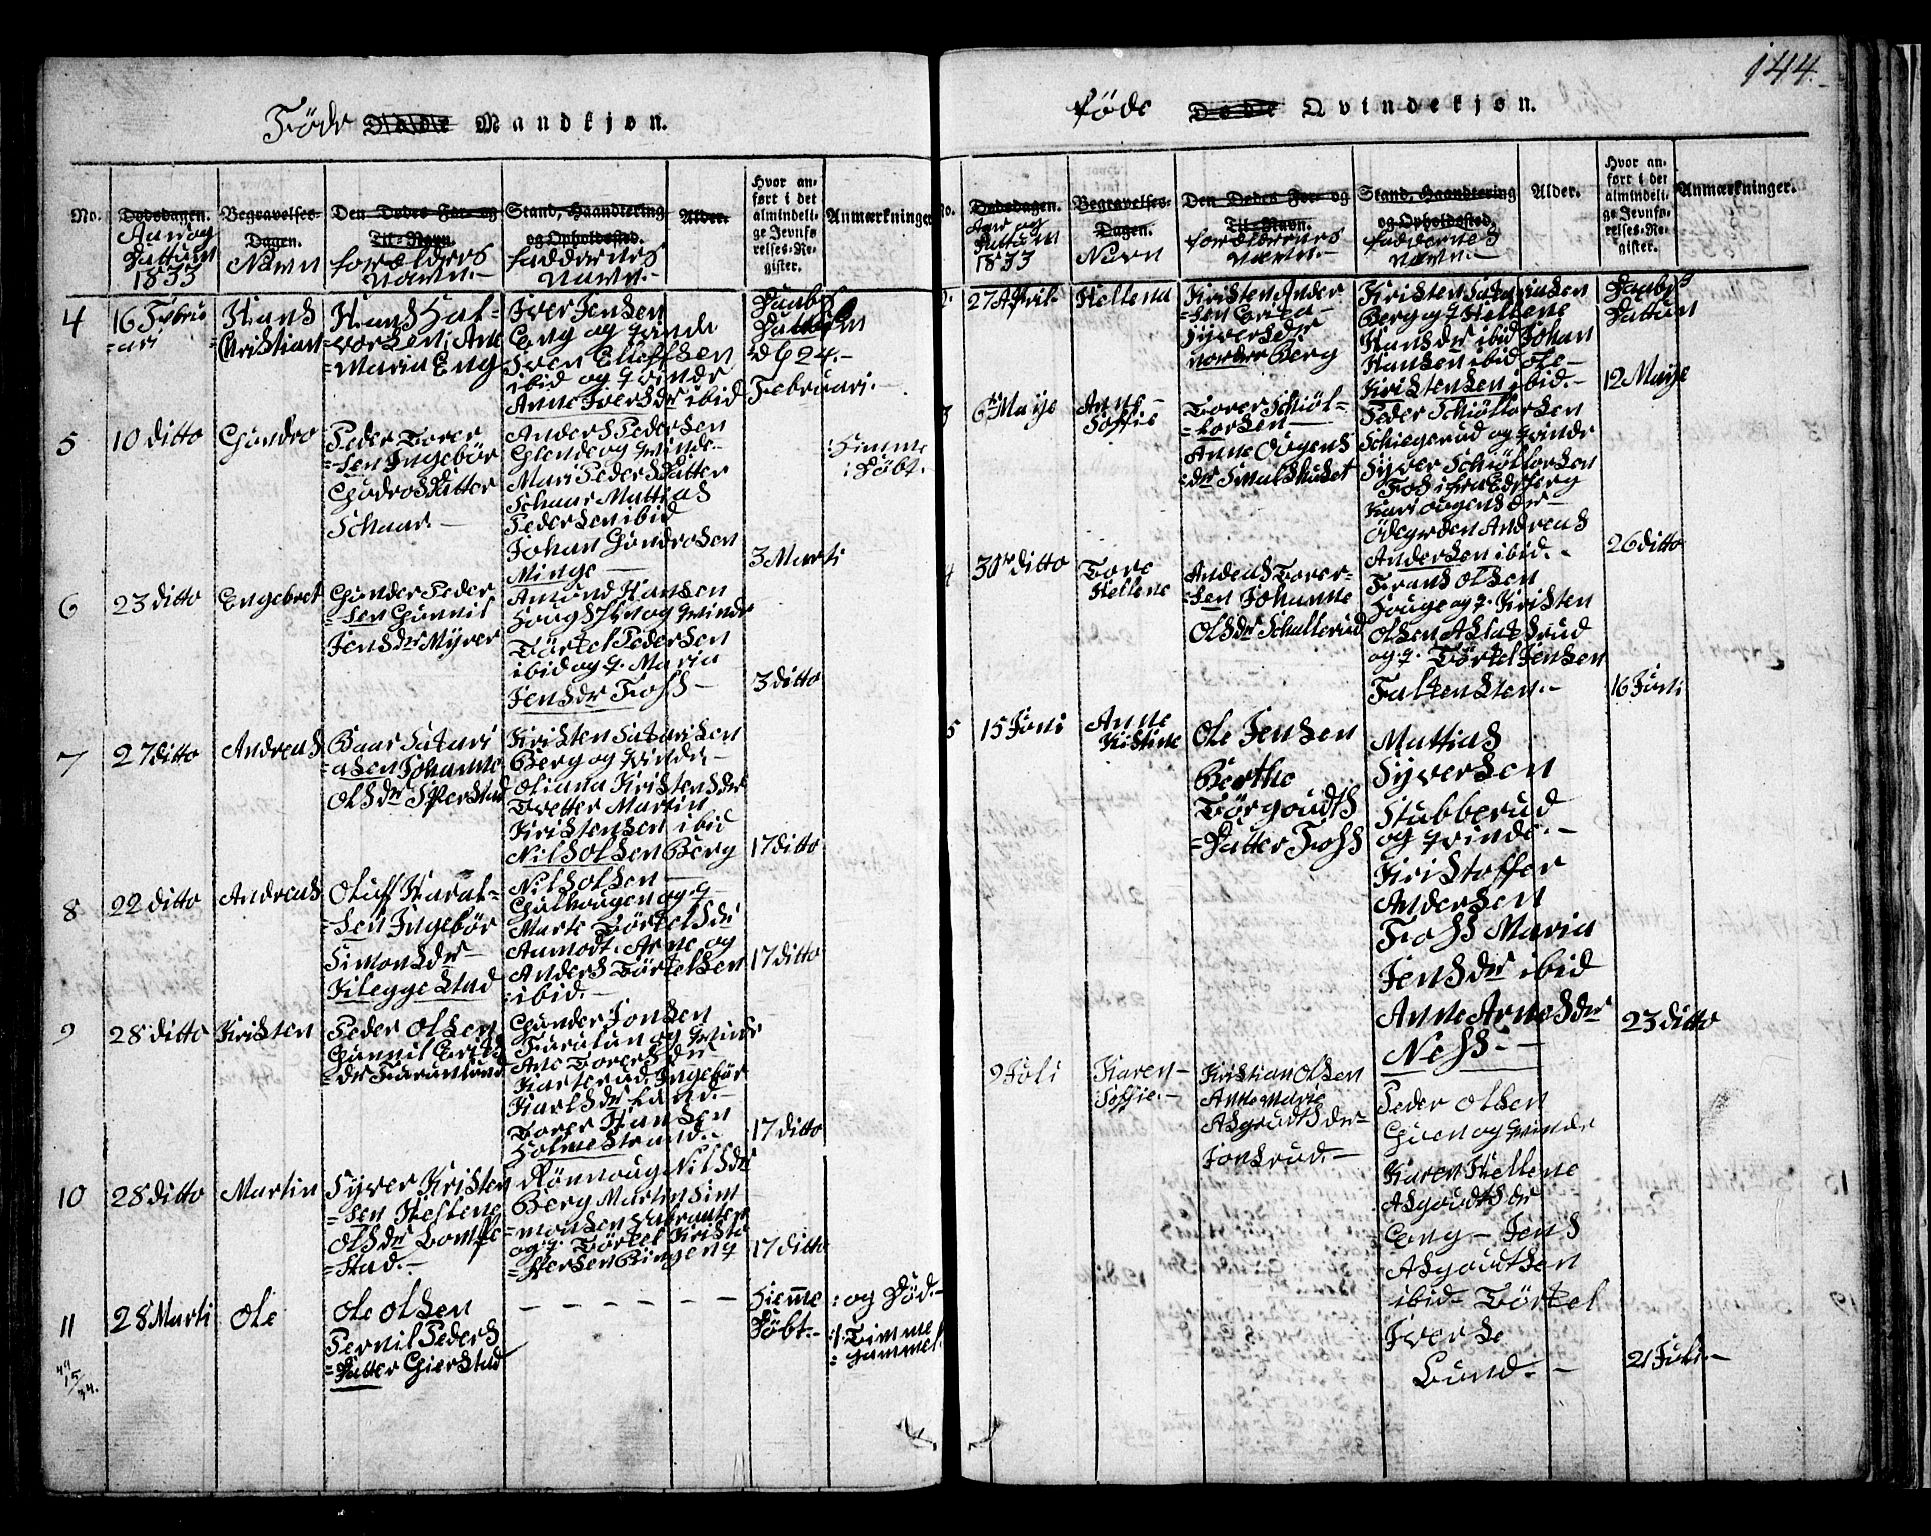 144.
Føde Døde Mandkjøn.
No.
Dødsdagen.
Aar og
Dattum
1833
Begravelses-
Dagen.
Navn
Den Dødes For- og
Til-Navn.
forældres
Navn.-
Stand, Haandtering
og Opholdssted.
faddernes
Navn.-
Alder.
Hvor an-
ført i det
almindeli-
ge Jevnfø-
relses-Re-
gister.
Anmærkninger.
4
16 Februi
=ari
Hans
Christian
Hans Hal-
vorsen, Ane
=Maria Eng
Iver Jensen
Eng og Qvinde
Sven Eliefsen
ibid og Qvinde
Anne Iversdr ibid
Daabs
Dattum
d 24.-
Februari.-
5
10 ditto
Gundro
Peder Torer
=sen Ingebør
Gudrosdatter
Schaar.-
Anders Pedersen
Glende og Qvinde
Mari Pedersdatter
Schaar Mattias
Pedersen ibid
Johan Gundrosen
Minge
3 Marti
Himme
Døbt.
6
23 ditto
Engebret
Gunder Peder
=sen Gunnil
Jensdr Myrer
Amund Hansen
og Qvinde
Törkel Pedersen
ibid og q. Maria
Jensdr Foss-
3 ditto
7
27 ditto
Andreas
Baar Sakari
=asen Johanne
Olsdr
Kristen Sakarisen
Berg og Qvinde-
Oliana Kristensdr
Tvetter Martin
Kristensen ibid
Nils Olsen Berg
17 ditto
8
22 ditto
Andreas
Oluff Haral=
=sen Ingebør
Simonsdr-
Nils Olsen-
og q-
Marte Törkelsdr
Aamodt. Arne og
Anders Törkelsen
=ibid.-
17 ditto
9
28 ditto
Kristen
Peder Olsen
Gunnil Erics
=dr
Gunder Jonsen
og Qvinde
Ane Torersdr-
Ingebør
Karlsdr Lund.-
Torer Hansen
Holmestrand.-
17 ditto
10
28 ditto
Martin
Syver Kristen
=sen Hellene
Olsdr
=stad.-
Rønnoug Nilsdr
Berg Martin Sim
=monsen
og q. Törkel Kristo
=ffersen Bingeng
17 ditto
11
28 Marti
Ole
Ole Olsen
Pernil Peders
=Datter Gierstad
Hiemme
Døbt.-
:og Død.-
: Timme
=gammel.
Føde Døde Qvindekjøn.
No.
Dødsdagen.
Aar og
Dattum
1833
Begravelses-
Dagen.
Navn
Den Dødes For- og
Til-Navn.
forældrenes
Navn.-
Stand, Haandtering
og Opholdssted.
faddernes
Navn.-
Alder.
Hvor an-
ført i det
almindeli-
ge Jevnfø-
relses-Re-
gister.
Anmærkninger.
27 April-
Hellena
Kristen Ander
=sen
Syversdr
nordre Berg
Kristen Sakariasen
Berg og q Hellene
Hansdr ibid Johan
Hansen ibid Ole-
Kristensen ibid.-
Daabs
Dattum
12 Maye
3
6 Maye
Anne-
Soffie
Torer Schiöl-
=lorsen
Anne Ougens
dr Smalshuset
Peder Schiöllorsen
Schiegerud og Qvinde
Syver Schiöllorsen
Kari Ougensdr-
Ödegorden Andreas
Andersen ibid.-
26 ditto
4
30r ditto
Tore
Hellene
Andreas Torer-
=sen Johanne
Olsdr Schullerud
Frans Olsen
Houge og q. Kristen
Olsen Aslakrud
og q. Törkel Jensen
Falkensten.-
16 Joni
5
15 Joni
Anne
Kistine
Ole Jensen
Berthe
Törgoudts
=Datter Foss
Mattias
Syversen
Stubberud
og Qvinde.-
Kristoffer
Andersen
Foss Maria
Jensdr ibid
Anne Arnesdr
Ness.-
23 ditto
9 Joli
Karen-
Soffie.-
Kristian Olsen
Anne Marie
Asgoudtsdr-
Jonsrud.-
Peder Olsen
Guen og Qvinde
Karen Hellene
Asgoudtsdr
Eng- Jens
Asgoudtsen
ibid- Törkel
Iverse
Lund.-
21 Juli.-